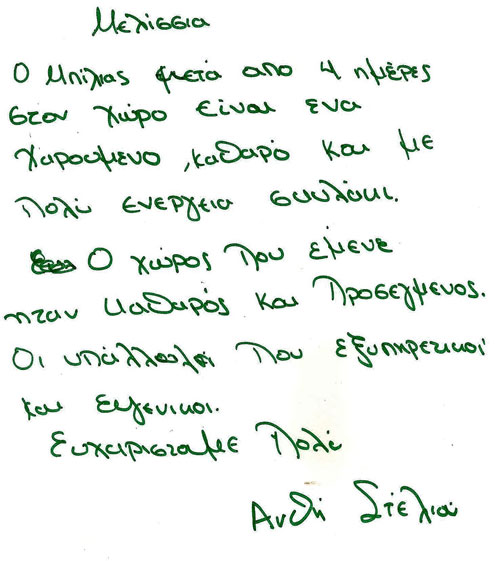 Μελίσσια
Ο Μπίλιας μετά απο 4 ημέρες
στον χώρο είναι ενα
χαρουμενο, καθαρό και με
πολύ ενεργεια σκυλάκι.
Ο χώρος που έμενε
ηταν καθαρός και προσεγμενος.
Οι υπάλληλοι που εξυπηρετικοί
και ευγενικοι.
Ευχαρισταμε πολύ
Ανθή Στέλιου